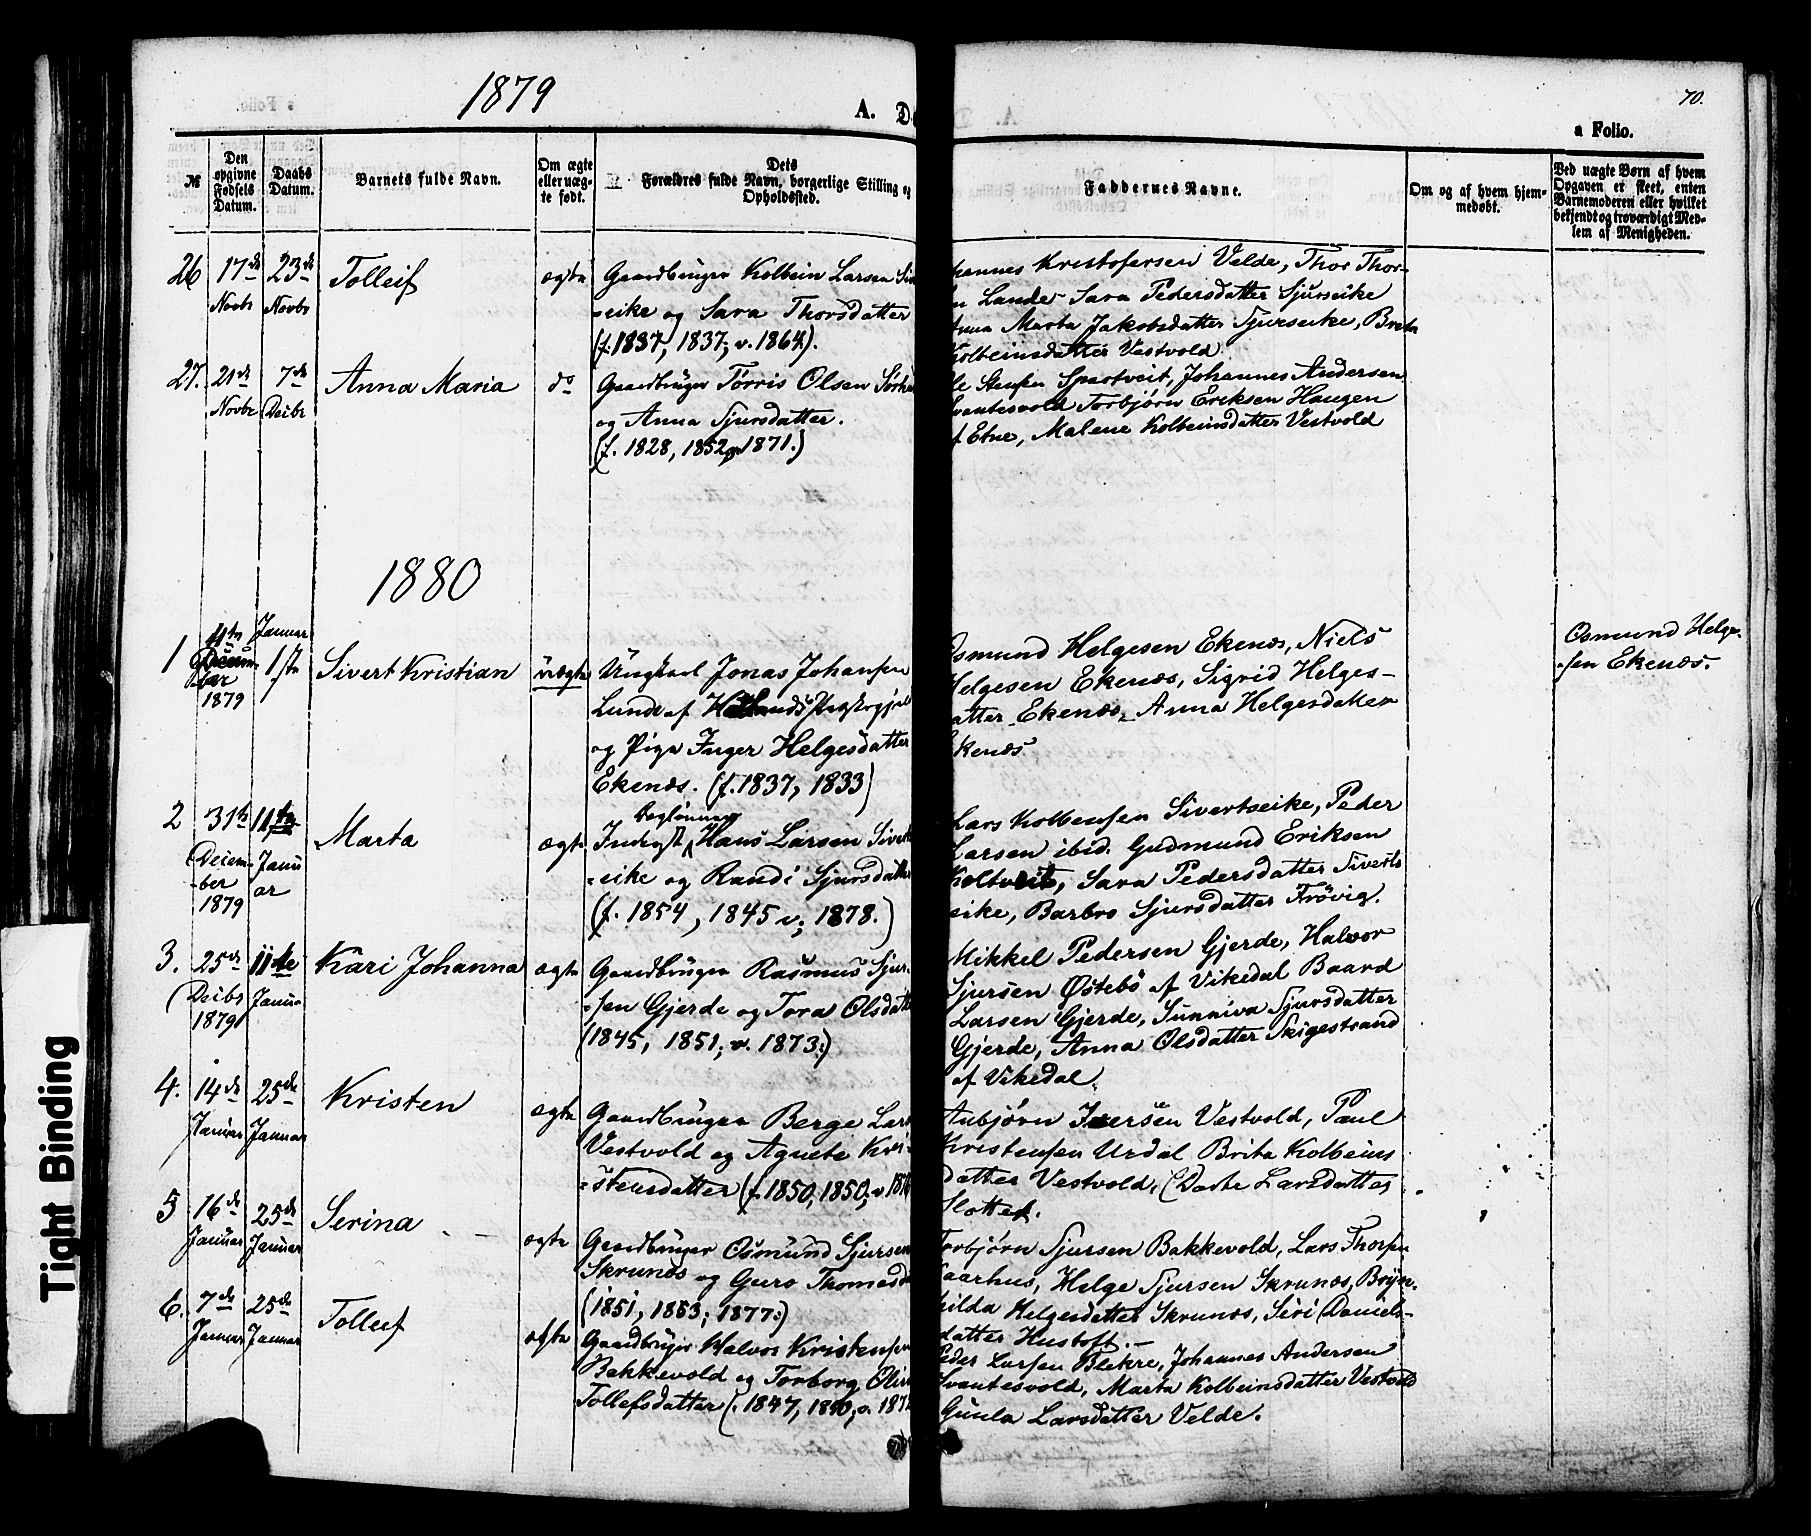 1879
A. D
70.
a Folio.
№
Den opgivne Fødsels Datum.
Daabs Datum.
Barnets fulde Navn.
Om ægte eller uæg-te født.
Dets
Forældres fulde Navn, borgerlige Stilling og
Opholdssted.
Faddernes Navne.
Om og af hvem hjem-
medøbt.
Ved uægte Børn af hvem
Opgaven er skeet, enten
Barnemoderen eller hvilket
bekjendt og troværdigt Med-
lem af Menigheden.
26 17de Novbr 23de Novbr Tolleif ægte
Gaardbruger Kolbein Larsen
-eike og Sara Thorsdatter
(f. 1837, 1837, v. 1864).
hannes Kristofersen Velde, Thor Thor-
Lande Sara Pedersdatter Sjurseike
Marta Jakobsdatter Sjurseike, Brita
Kolbeinsdatter Vestvold.
27. 21de Novbr 7de Decbr Anna Maria do
Gaardbruger Tørris Olsen
og Anna Sjursdatter.
(f. 1828, 1852, 1871.)
Spestveit, Johannes Andersen
Svantesvold Torbjørn Eriksen Haugen
af Etne, Malene Kolbeinsdatter Vestvold
1880
1 11te Decem-ber 1879 Januar 1ste Sivert Kristian uægte
Ungkarl Jonas Johansen
Lunde af Præstegjeld
og Pige Inger Helgesdatter
Ekenæs. (f. 1837, 1833)
Osmund Helgesen Ekenæs, Niels
Helgesen Ekenæs, Sigrid Helges-
datter Ekenæs, Anna Helgesdatter
Ekenæs
Osmund Helge-
sen Ekenæs.
2 31te Decem-ber 1879 11te Janu-ar Marta ægte
Hans Larsen Sivert-
-eike og Randi Sjursdatter
(f. 1854, 1845 v. 1878.)
Lars Kolbensen Sivertseike, Peder
Larsen ibid. Gudmund Eriksen
Holtveit, Sara Pedersdatter Siverts
eike, Barbro Sjursdatter Frøvig.
3. 25de Decbr 1879 11te Janu- Kari Johanna ægte
Gaardbruger Rasmus Sjur-
-sen Gjerde og Tora Olsdatt
(1845, 1851; v. 1873.)
Mikkel Pedersen Gjerde, Halvor
Sjursen Østebø af Vikedal Baard
Larsen Gjerde, Sunniva Sjursdatter
Gjerde, Anna Olsdatter Skigestrand
af Vikedal.
4. 14de Januar 25de Januar Kristen ægte
Gaardbruger Berge Lars
Vestvold og Agnete Kri-
-stensdatter (f. 1850, 1850, v. 187
Anbjørn Iversen Vestvold, Paul
Kristensen Urdal Brita Kolbeins
datter Vestvold, Dorte Larsdatter
Slottet.
5 16de Januar 25de Januar Serina ægte
Gaardbruger Osmund Sjursen
Skrunæs og Guro Thomasd
(1851, 1853; 1877.)
Torbjørn Sjursen Bakkevold, Lars Thorsen
Aarhus, Helge Sjursen Skrunæs, Bryn-
hilda Helgesdatter Skrunæs, Siri Daniels-
datter Hustoft.
6. 7de Januar 25de Januar Tolleif ægte
Gaardbruger Halvor Kristensen
Bakkevold og Torborg
Tollefsdatter (. 1847, 1850, v. 187
Peder Larsen Blikre, Johannes Andersen
Svantesvold, Marta Kolbeinsdatter Vestvold
Gunla Larsdatter Velde.
Tight Binding